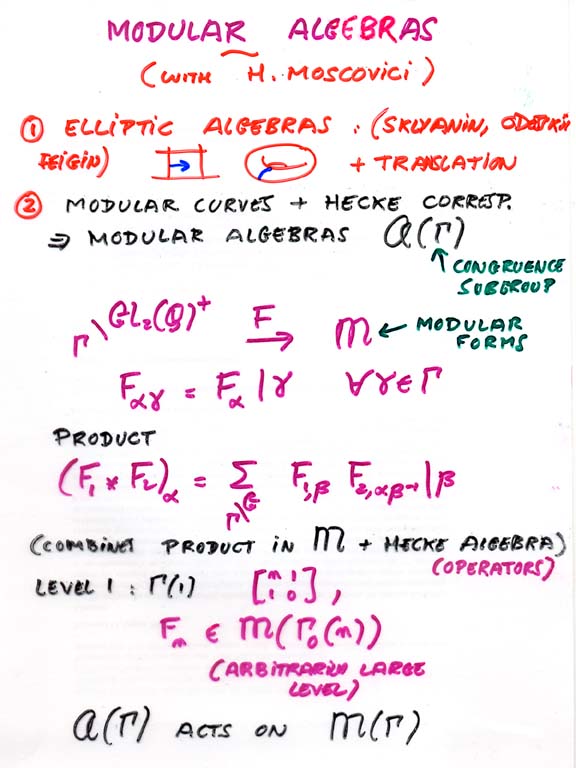 MODULAR ALGEBRAS
(WITH H. MOSCOVICI)
① ELLIPTIC ALGEBRAS : (SKLYANIN, ODESKII
FEIGIN) + TRANSLATION
② MODULAR CURVES + HECKE CORRESP.
⇒ MODULAR ALGEBRAS 𝒜(Γ)
↑ CONGRUENCE
SUBGROUP
Γ\GL₂(Q)⁺ F→ M ← MODULAR
FORMS
F_{αγ} = F_α|γ ∀γ∈Γ
PRODUCT
(F₁ * F₂)_α = Σ_{Γ\G} F_{1,β} F_{2,αβ⁻¹}|β
(COMBINES PRODUCT IN M + HECKE ALGEBRA)
(OPERATORS)
LEVEL 1 : Γ(1) [n 1 1 0],
F_n ∈ M(Γ₀(n))
(ARBITRARILY LARGE
LEVEL)
𝒜(Γ) ACTS ON M(Γ)